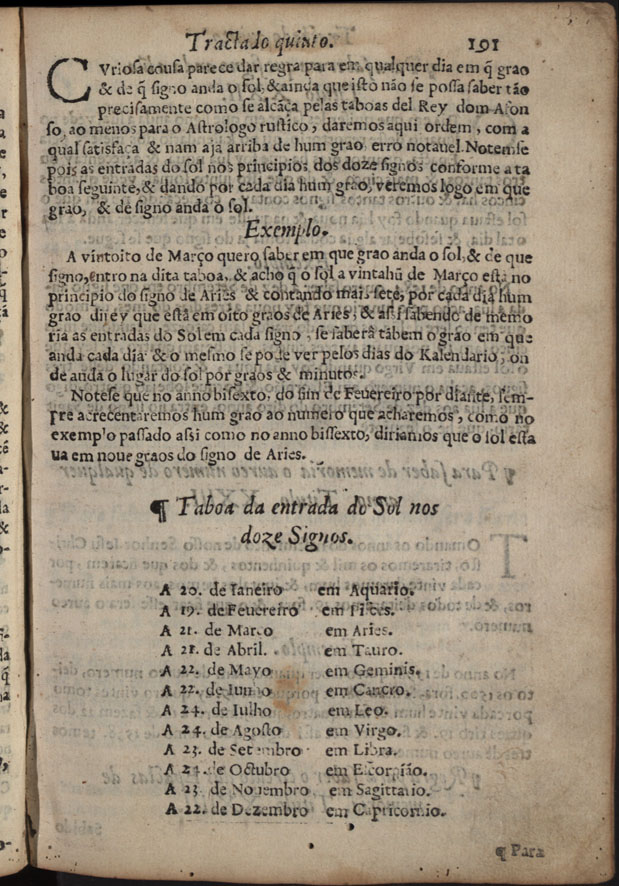 Tractado quinto. 191
CVriosa cousa parece dar regra para em qualquer dia em q̃ grao
& de q̃ signo anda o sol, & ainda que isto não se possa saber tão
precisamente como se alcãça pelas taboas del Rey dom Afon
so, ao menos para o Astrologo rustico, daremos aqui ordem, com a
qual satisfaça & nam aja arriba de hum grao erro notauel. Notemse
pois as entradas do sol nos principios dos doze signos conforme a ta
boa seguinte, & dando por cada dia hum grao, veremos logo em que
grao, & de signo anda o sol.
Exemplo.
A vintoito de Março quero saber em que grao anda o sol, & de que
signo, entro na dita taboa, & acho q̃ o sol a vintahũ de Março está no
principio do signo de Aries & contando mais sete, por cada dia hum
grao direy que está em oito graos de Aries, & assi sabendo de memo
ria as entradas do Sol em cada signo, se saberá tãbem o grao em que
anda cada dia & o mesmo se pode ver pelos dias do Kalendario, on
de anda o lugar do sol por graos & minutos.
Notese que no anno bissexto, do fim de Feuereiro por diante, sem-
pre acrecentaremos hum grao ao numero que acharemos, como no
exemplo passado assi como no anno bissexto, diriamos que o sol esta
ua em noue graos do signo de Aries.
¶ Taboa da entrada do Sol nos
doze Signos.
A 20. de Ianeiro em Aquario.
A 19. de Feuereiro em Pisces.
A 21. de Março em Aries.
A 21. de Abril. em Tauro.
A 22. de Mayo em Geminis.
A 22. de Iunho em Cancro.
A 24. de Iulho em Leo.
A 24. de Agosto em Virgo.
A 23. de Setembro em Libra.
A 24. de Octubro em Escorpião.
A 23. de Nouembro em Sagittario.
A 22. de Dezembro em Capricornio.
¶ Para